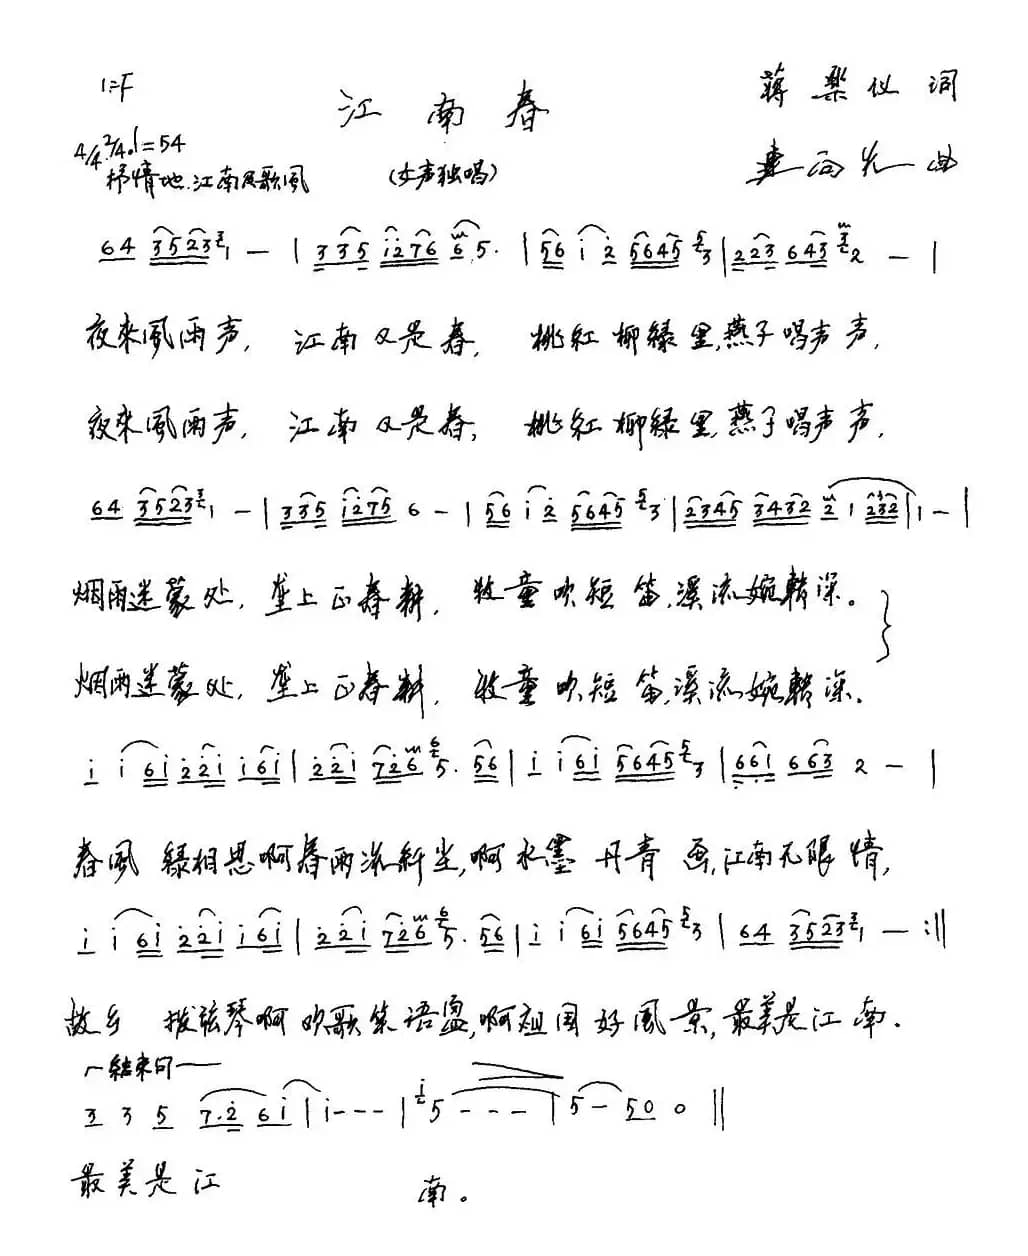 1=F
江南春
蒋乐仪 词
4/4 2/4 ♩=54
抒情地.江南民歌风
(女声独唱)
向光 曲
64 3523 1 — | 335 i276 65. | 56 i 2 5645 3 | 223 643 2 — |
夜来風雨声, 江南又是春, 桃紅柳綠里,燕子唱声声,
夜來風雨声, 江南又是春, 桃紅柳綠里,燕子唱声声,
64 3523 1 — | 335 i275 6 — | 56 i 2 5645 3 | 2345 3432 2 1 232 | 1 — |
烟雨迷蒙处, 垄上正春耕, 牧童吹短笛,溪流婉轉深。
烟雨迷蒙处, 垄上正春耕, 牧童吹短笛,溪流婉轉深.
i i 6i 22i i6i | 22i 726 5. 56 | i i 6i 5645 3 | 661 663 2 — |
春風 綠相思啊春雨滌纤尘,啊水墨丹青画,江南无限情,
i i 6i 22i i6i | 22i 726 5. 56 | i i 6i 5645 3 | 64 3523 1 — :||
故乡 拨弦琴啊欢歌笑语盈,啊祖国好風景,最美是江南.
结束句
3 3 5 7.2 6i | i - - - | 5 - - - | 5 — 50 0 ||
最美是江 南。